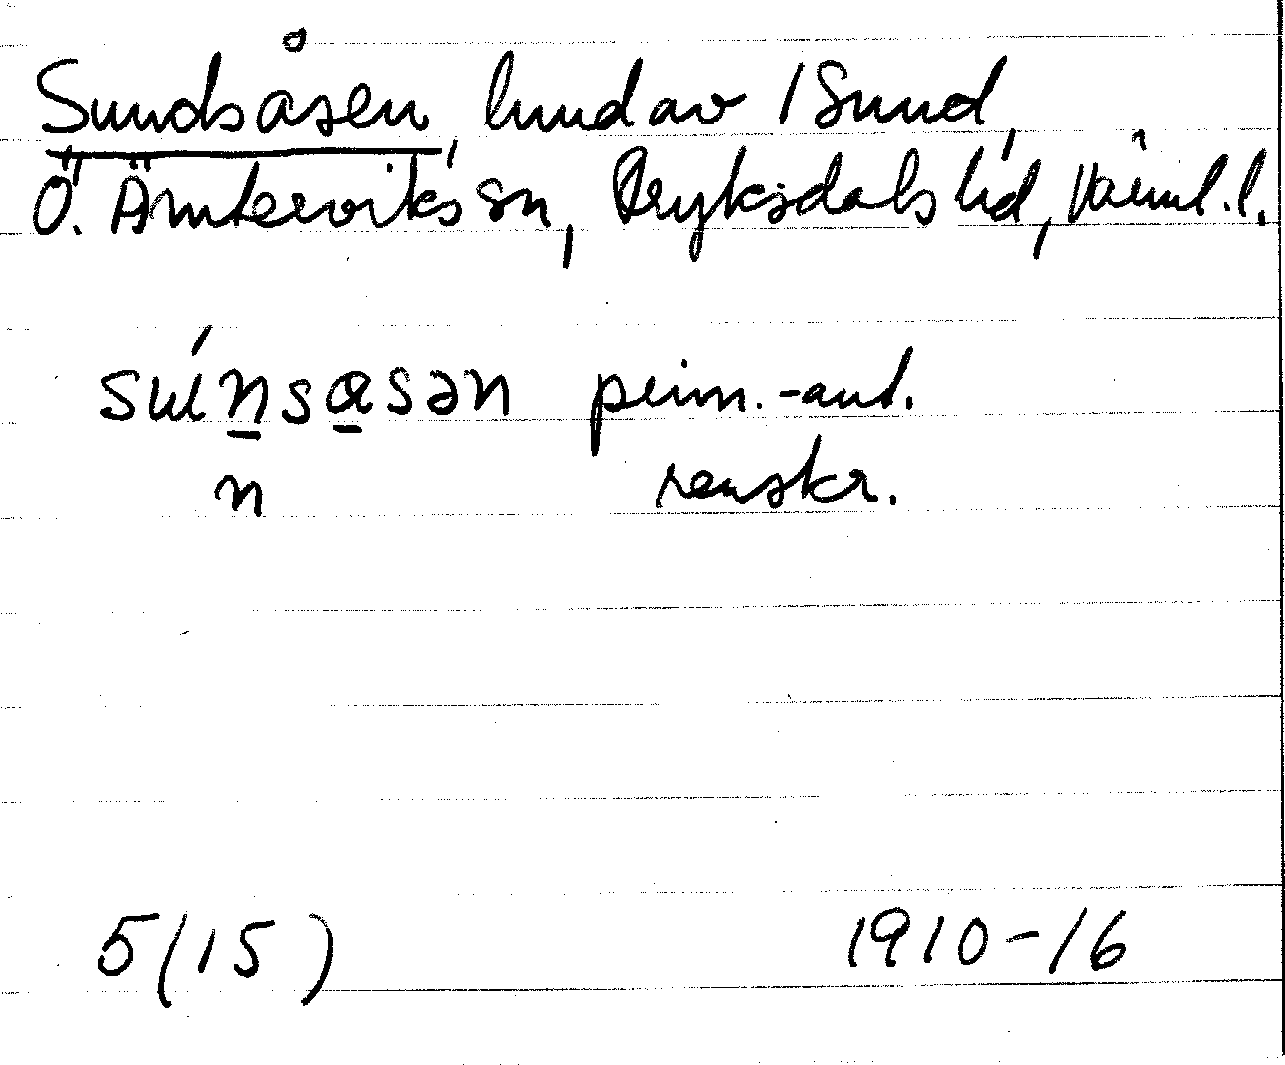 Sundsåsen, hmd av 1 Sund,
Ö. Ämterviks sn, Fryksdals hd, Värml. l.
súṉsa̱sən prim.-ant.
n renskr.
5(15) 1910-16